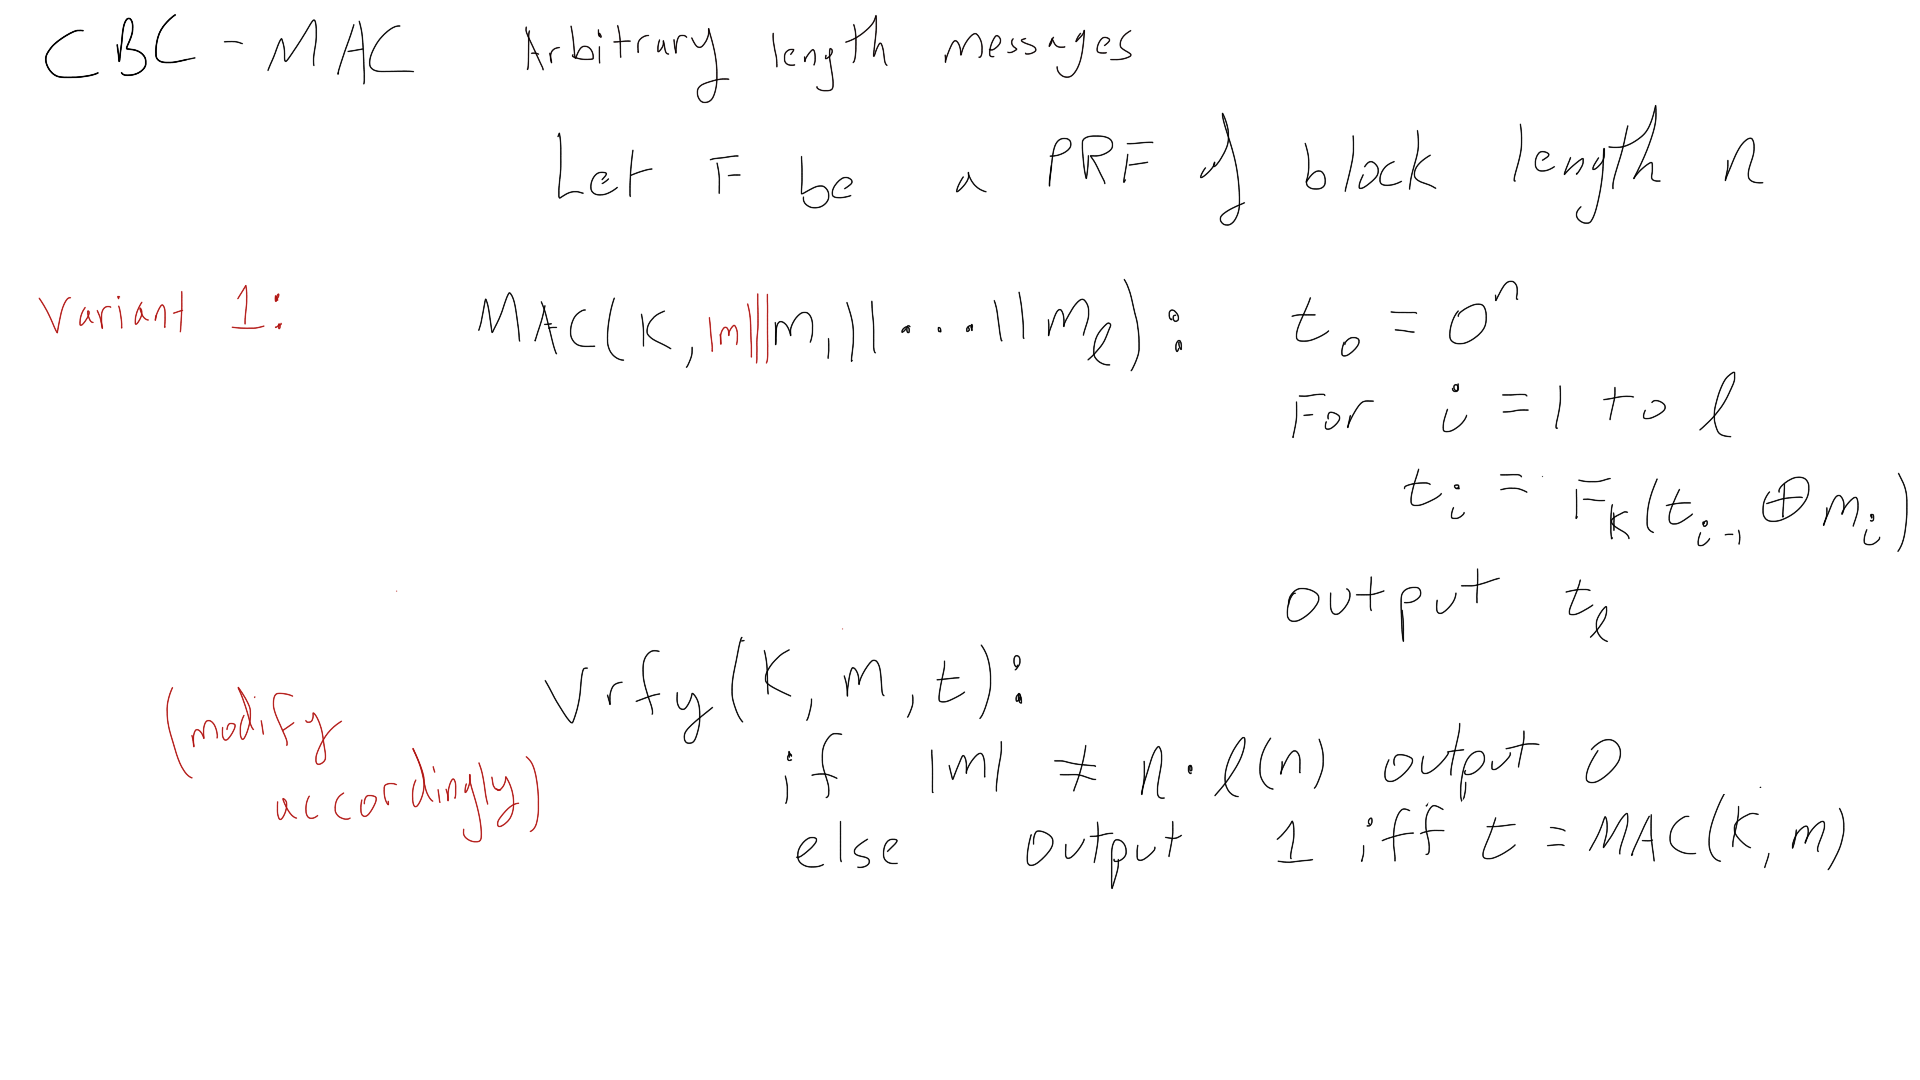 CBC-MAC Arbitrary length messages
Let F be a PRF of block length n
Variant 1: MAC(K, |m|||m₁||...||m_ℓ): t₀ = 0ⁿ
For i = 1 to ℓ
tᵢ = F_K(tᵢ₋₁ ⊕ mᵢ)
output t_ℓ
Vrfy(K, m, t):
(modify
accordingly)
if |m| ≠ n·ℓ(n) output 0
else output 1 iff t = MAC(K, m)